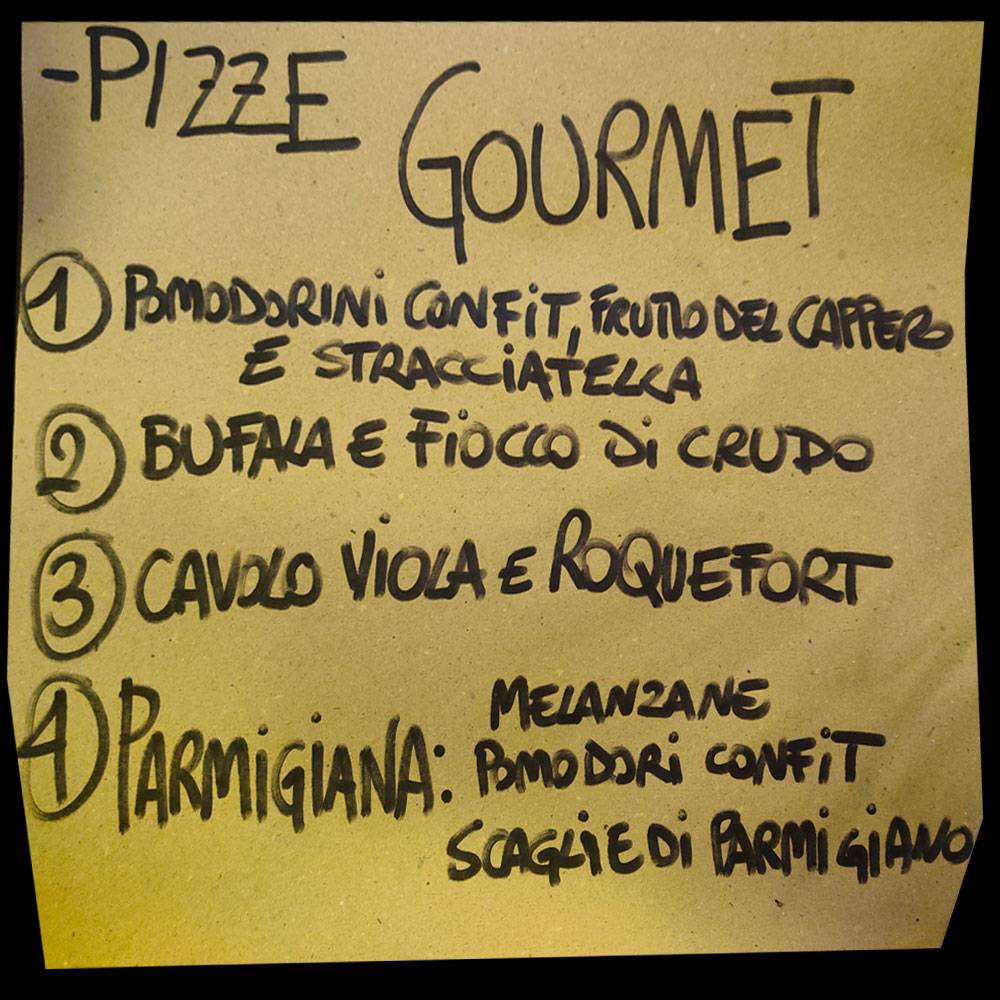 -PIZZE
GOURMET
1 POMODORINI CONFIT, FRUTTO DEL CAPPERO
E STRACCIATELLA
2 BUFALA E FIOCCO DI CRUDO
3 CAVOLO VIOLA E ROQUEFORT
4 PARMIGIANA: MELANZANE
POMODORI CONFIT
SCAGLIE DI PARMIGIANO